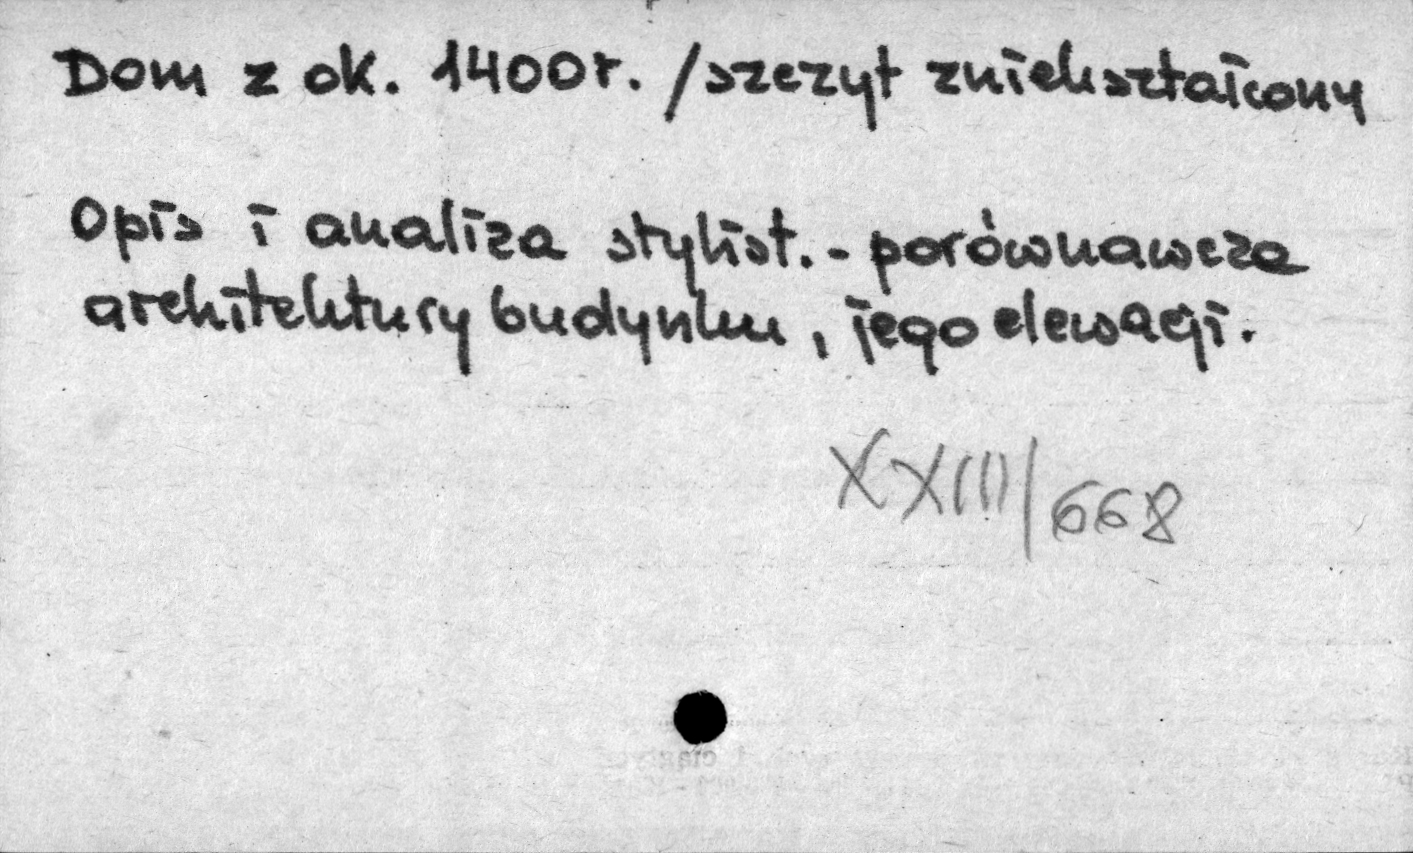 Dom z ok. 1400r. /szczyt zniekształcony
Opis i analiza stylist. - porównawcza
architektury budynku, jego elewacji.
XXIII/668